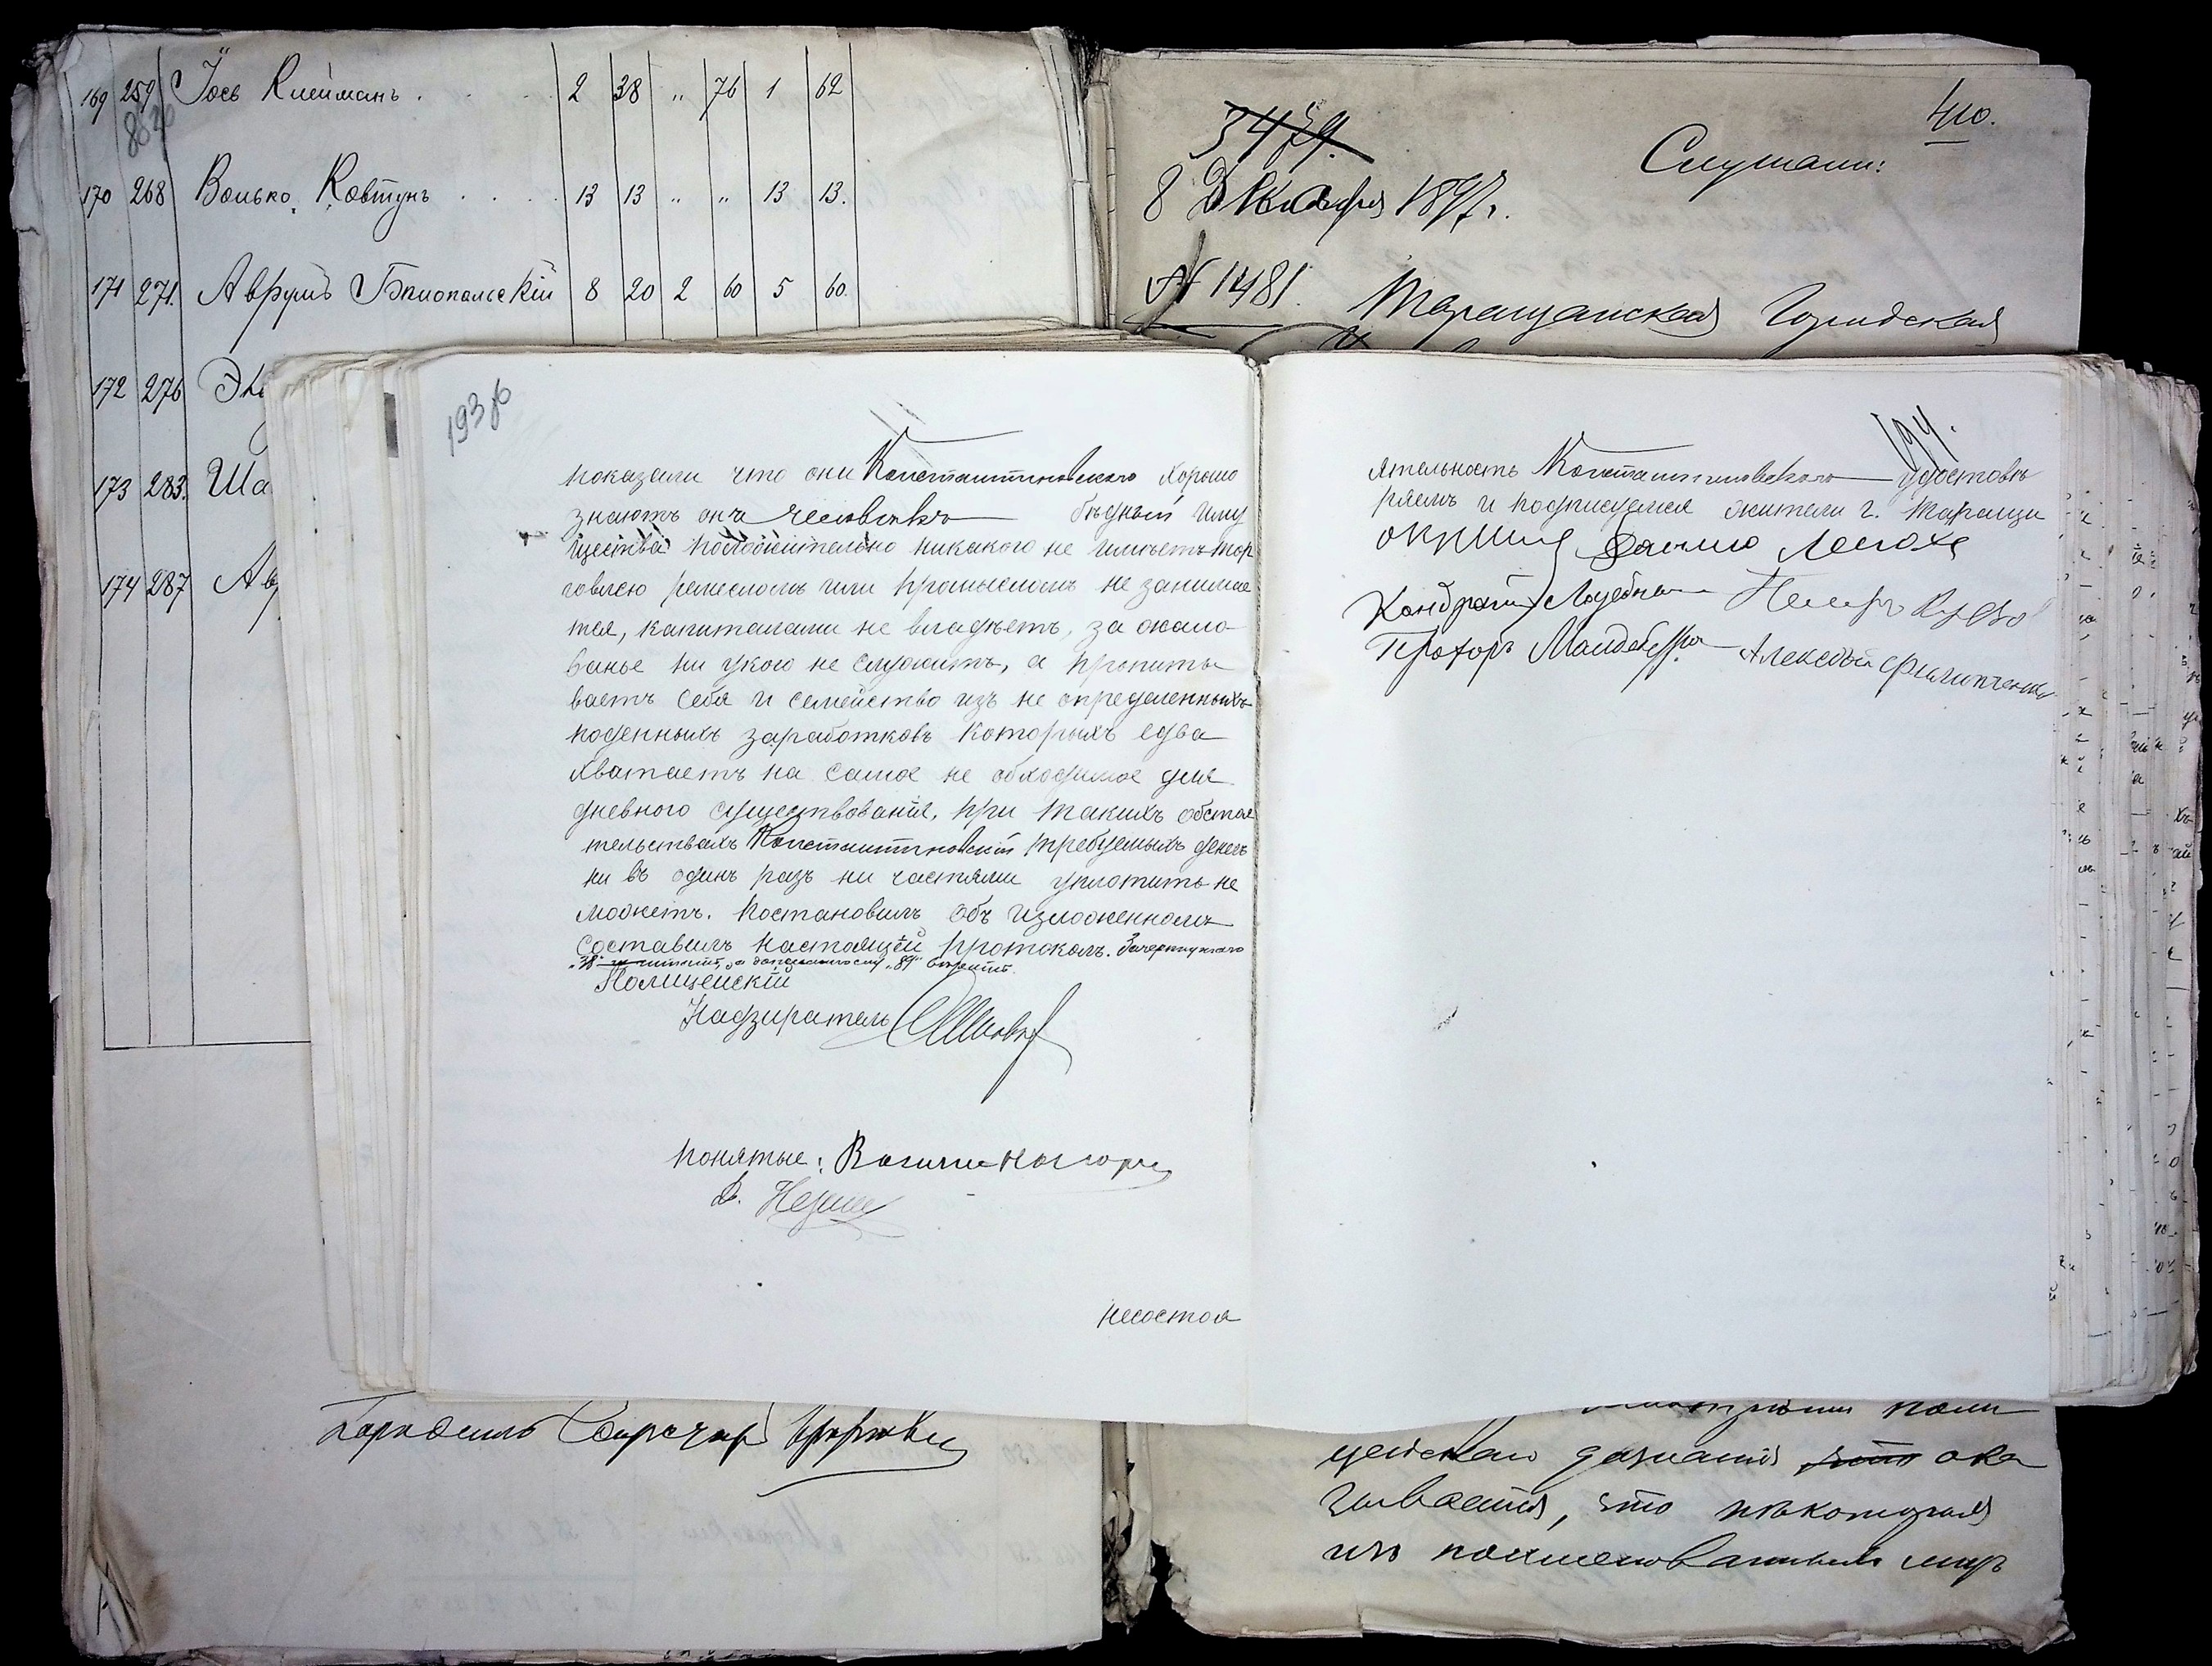 169 259 Іось Клейманъ . . . 2 38 „ 76 1 62
170 268 Волько Ковтунъ . . . . 13 13 „ „ 13 13.
171 271. Аврумъ Бялопольскій 8 20 2 60 5 60.
172 276
173 283. Ша
174 287 Ав
410.
Слушали:
8 Декабря 1897 г.
№ 1481.
Таращанская Городская
193 об
показали что они Константиновского хорошо
знаютъ онъ человѣкъ бѣдный иму
щества положительно никакого не имѣетъ тор
говлею ремесломъ или промысломъ не занимае
тся, капиталами не владѣетъ, за окало
ванье ни укого не служитъ, а пропиты
ваетъ себя и семейство изъ не определенныхъ
поденныхъ заработковъ которыхъ едва
хватаетъ на самое не обходимое для
дневного существованія, при такихъ обстоя
тельствахъ Константиновскій требуемыхъ денегъ
ни въ одинъ разъ ни частями уплотить не
можетъ. Постановилъ объ изложенномъ
составилъ настоящій протоколъ. Зачеркнутого
Полицейскій
Надзиратель
понятые:
несостоя
194.
ятельность Константиновского удостовѣ
ряемъ и подписуемся жители г. Таращи
Кондратій
Прохоръ Алексѣй Филипченко
цейскаго дознанія что ока
зывается, что нѣкоторыя
изъ поименованныхъ лицъ